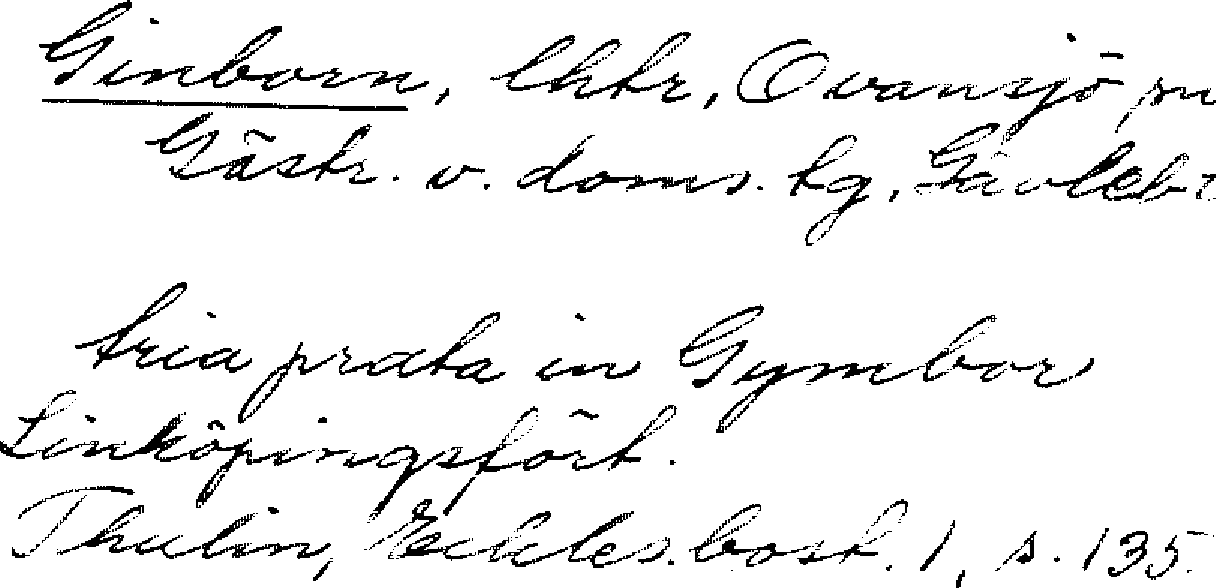 Ginborn, lhtr, Ovansjö sn
Gästr. v. doms. tg, Gävlebr
tria prata in Gymbor
Linköpingsfört.
Thulin, Eckles.bost. 1, s. 135.